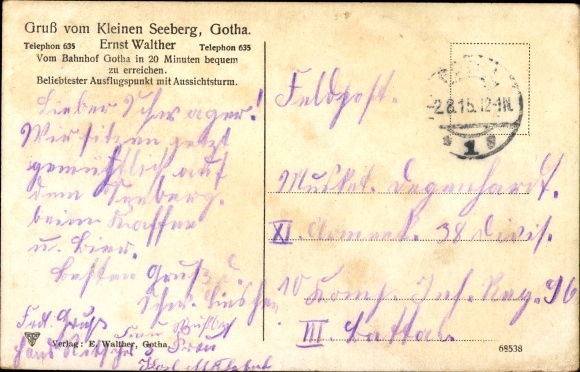 Gruß vom Kleinen Seeberg, Gotha.
Telephon 635 Ernst Walther Telephon 635
Vom Bahnhof Gotha in 20 Minuten bequem
zu erreichen.
Beliebtester Ausflugspunkt mit Aussichtsturm.
Lieber Schwager!
Wir sitzen jetzt
gemütlich auf
dem Seeberg
beim Kaffee
u. Bier.
Besten Gruß
Frdl. Gruß
Frau
Verlag: E. Walther, Gotha
Feldpost.
2.8.15.12-1N.
1
Musket. Degenhardt.
XI. Armeek. 38 Divis.
10 Komp. Inf. Reg. 96
III. Battal.
68538